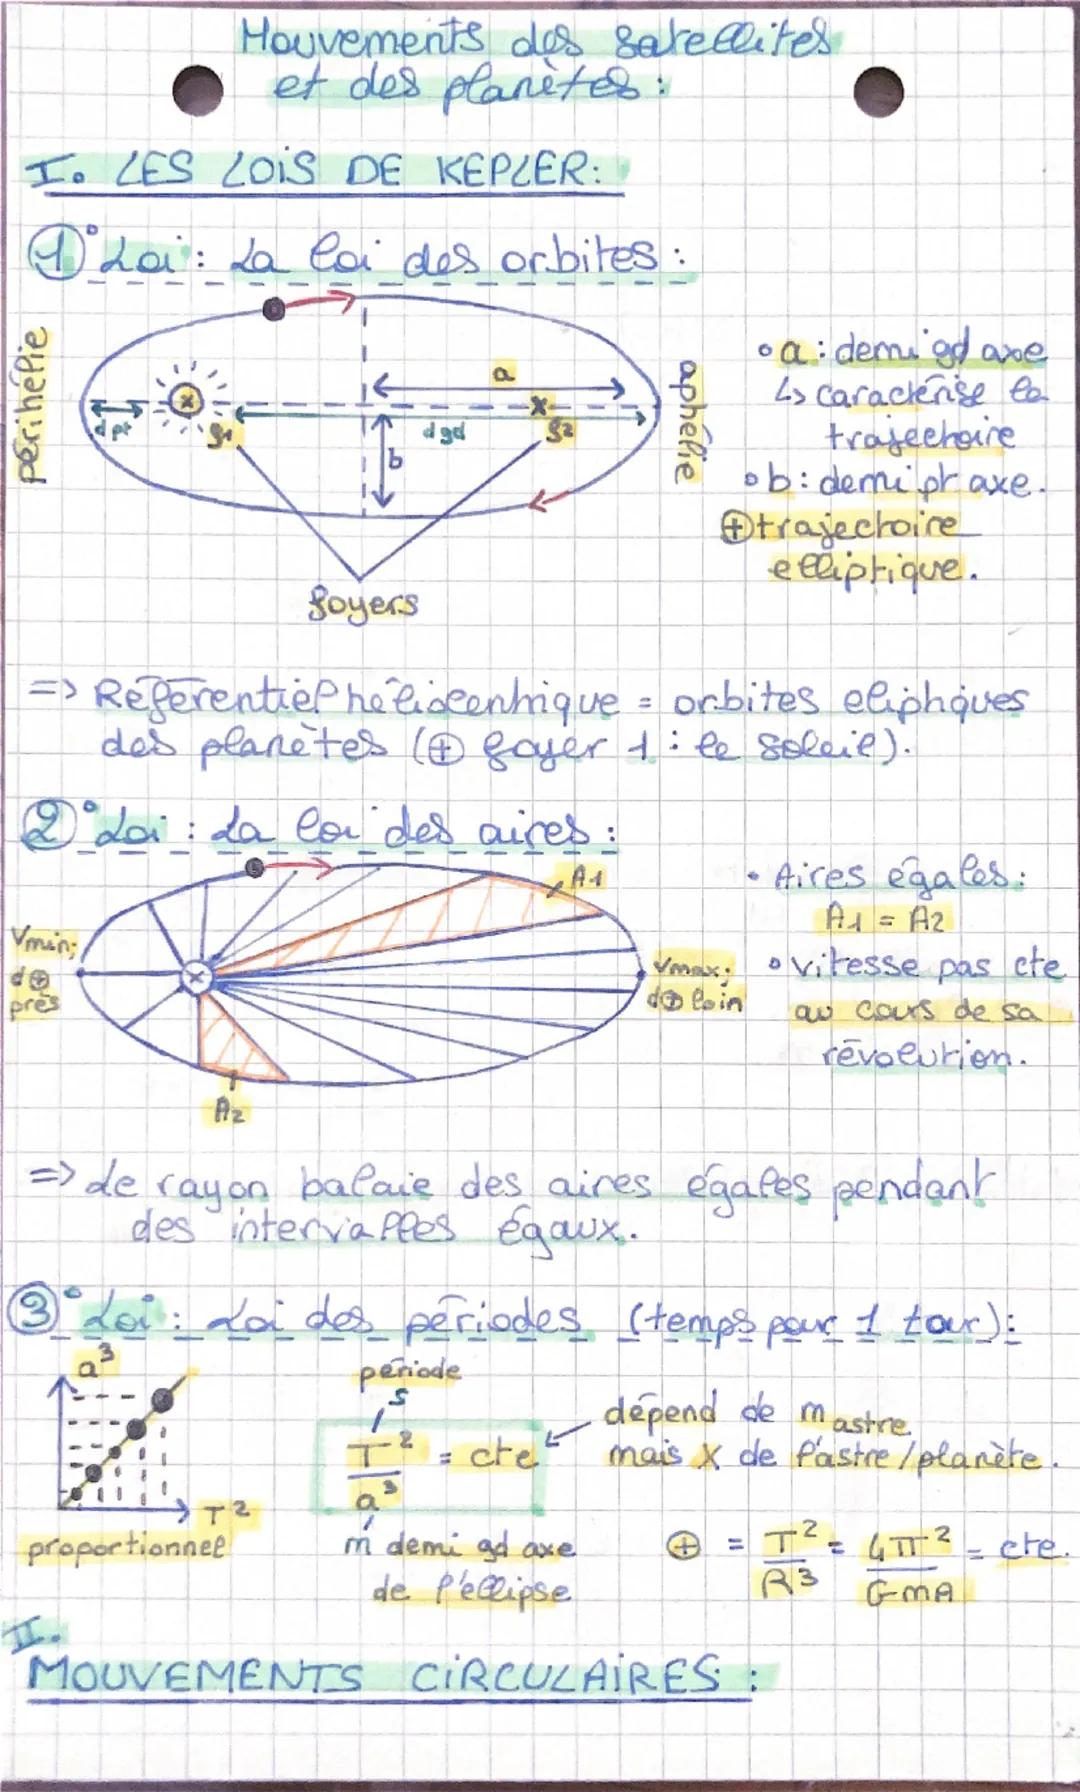 Mouvements des satellites
et des planètes :
I. LES LOIS DE KEPLER:
1° Loi : La loi des orbites :
périhélie
a
d pt
F1
d gd
F2
b
aphélie
foyers
• a : demi gd axe
↳ caractérise la
trajectoire
• b : demi pt axe.
⊕ trajectoire
elliptique.
=> Référentiel héliocentrique = orbites eliptiques
des planètes (⊕ foyer 1 : le soleil).
2° Loi : La loi des aires :
A1
Vmin;
d⊕
près
Vmax;
d⊕ loin
A2
• Aires égales :
A1 = A2
• vitesse pas cte
au cours de sa
révolution.
=> Le rayon balaie des aires égales pendant
des intervalles égaux.
3° Loi : Loi des périodes (temps pour 1 tour) :
a³
T²
proportionnel
période
s
T²/a³ = cte
m demi gd axe
de l'ellipse
dépend de m astre
mais X de l'astre / planète.
⊕ = T²/R³ = 4π²/G·mA = cte.
II.
MOUVEMENTS CIRCULAIRES :